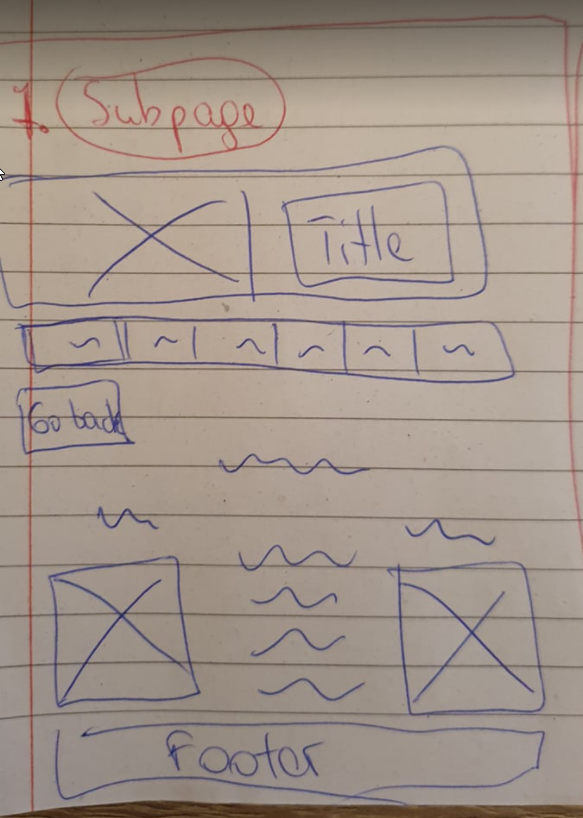 1. Subpage
Title
Go back
Footer